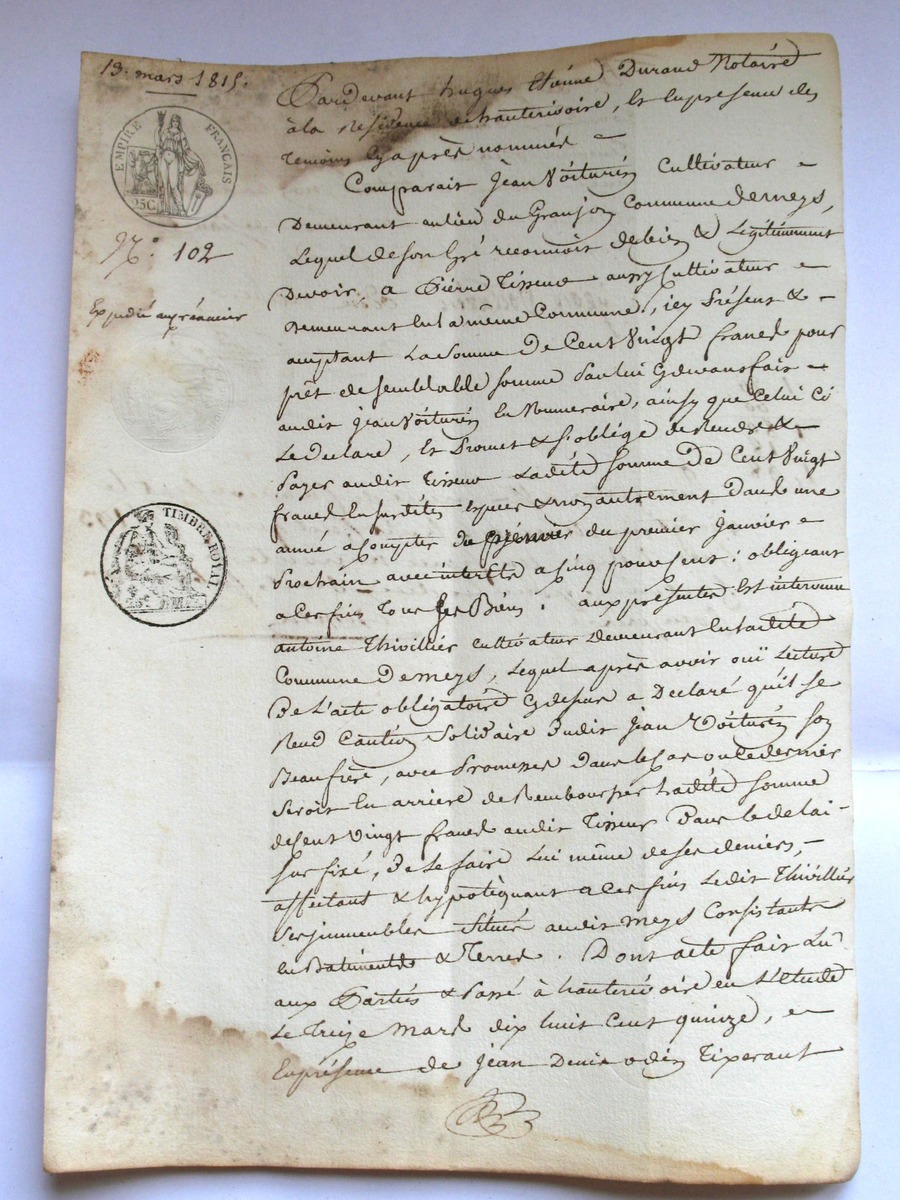 13. mars 1815.
EMPIRE FRANÇAIS
25C
N.° 102
Expédié au créancier
TIMBRE ROYAL
Pardevant hugues Etienne Durand Notaire
à la Residence d'hauterivoire, Et En presence des
temoins Cy après nommés
Comparait jean Voiturin Cultivateur
Demeurant au lieu du Granjon Commune de meys,
Lequel de son Gré reconnoit de bien & Légitimement
Devoir a Pierre Tisseur aussy Cultivateur
demeurant En la même Commune, icy Présent &
acceptant La Somme De Cent Vingt francs pour
prêt de semblable somme Par lui Cy devant fait
audit jean Voiturin En Numeraire, ainsy que Celui Ci
Le Declare, Et Promet & s'oblige de Rendre &
Payer audit Tisseur Ladite somme De Cent Vingt
francs En susdites Especes & non autrement Dans une
année a Compter du premier janvier
Prochain avec interets a cinq pour cent : obligeant
a Ces fins tous Ses Biens. aux presentes Est intervenu
antoine Thivillier cultivateur demeurant En Ladite
Commune De meys, Lequel après avoir ouï Lecture
De L'acte obligatoire Cy dessus a Declaré qu'il se
Rend Caution Solidaire dudit jean Voiturin son
Beaufrere, avec Promesse Dans le Cas ou Ce dernier
seroit En arriere de Rembourser Ladite somme
de Cent Vingt francs audit Tisseur Dans le delai
sus fixé, De Le faire Lui même de ses deniers,
affectant & hypotèquant a Ces fins Ledit Thivillier
ses immeubles Situés audit meys Consistants
en Batiments & Terres. Dont acte fait Lu
aux Parties & Passé à hauterivoire en L'etude
Le treize Mars dix huit Cent quinze,
En présence de jean Denis odin Tixerant